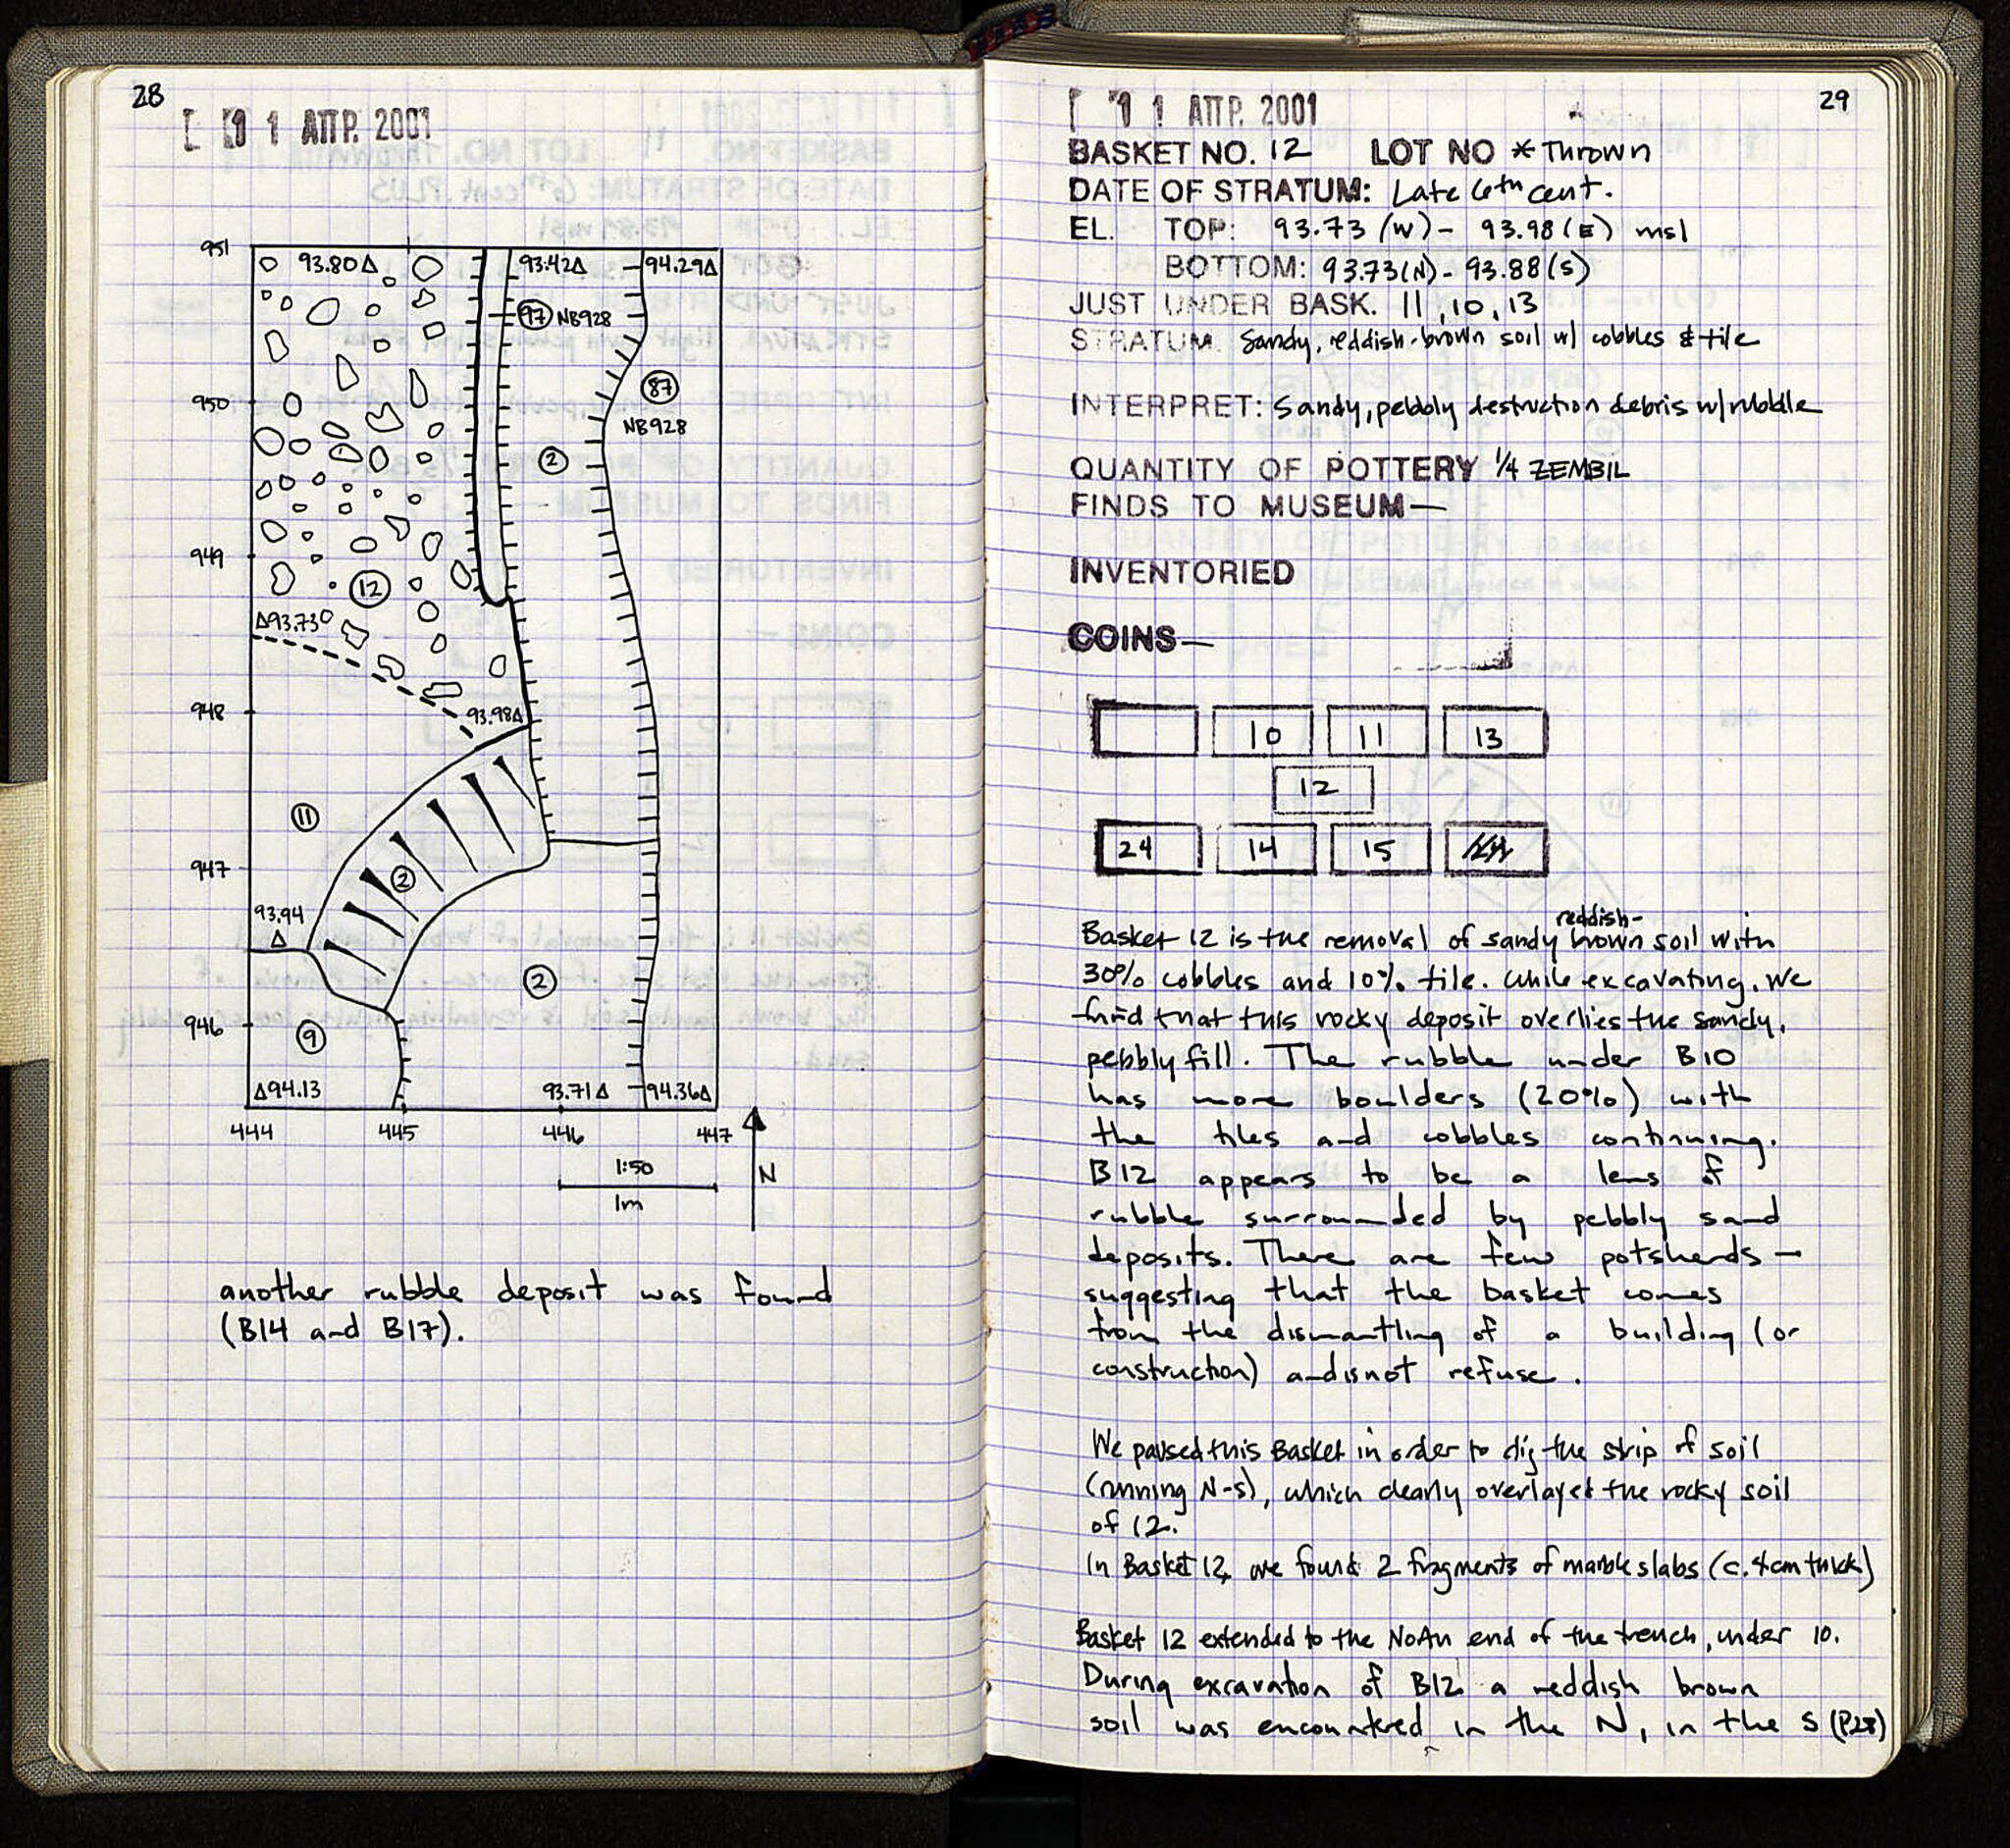 28
11 ΑΠΡ. 2001
951
93.80Δ
93.42Δ
94.29Δ
97 NB928
950
87
NB928
2
949
12
Δ93.730
948
93.98Δ
11
947
2
93.94
Δ
2
946
9
Δ94.13
93.71Δ
94.36Δ
444
445
446
447
1:50
1m
N
another rubble deposit was found
(B14 and B17).
29
11 ΑΠΡ. 2001
BASKET NO. 12 LOT NO *Thrown
DATE OF STRATUM: Late 6th cent.
EL. TOP: 93.73 (W) - 93.98 (E) msl
BOTTOM: 93.73(N) - 93.88(S)
JUST UNDER BASK. 11, 10, 13
STRATUM. Sandy, reddish-brown soil w/ cobbles & tile
INTERPRET: Sandy, pebbly destruction debris w/rubble
QUANTITY OF POTTERY 1/4 ZEMBIL
FINDS TO MUSEUM—
INVENTORIED
COINS—
10 11 13
12
24 14 15
Basket 12 is the removal of sandy reddish-brown soil with
30% cobbles and 10% tile. While excavating, we
find that this rocky deposit overlies the sandy,
pebbly fill. The rubble under B10
has more boulders (20%) with
the tiles and cobbles continuing.
B12 appears to be a lens of
rubble surrounded by pebbly sand
deposits. There are few potsherds —
suggesting that the basket comes
from the dismantling of a building (or
construction) and is not refuse.
We paused this Basket in order to dig the strip of soil
(running N-S), which clearly overlayed the rocky soil
of 12.
In Basket 12, we found 2 fragments of marble slabs (c. 4cm thick)
Basket 12 extended to the NoAn end of the trench, under 10.
During excavation of B12 a reddish brown
soil was encountered in the N, in the S (P28)